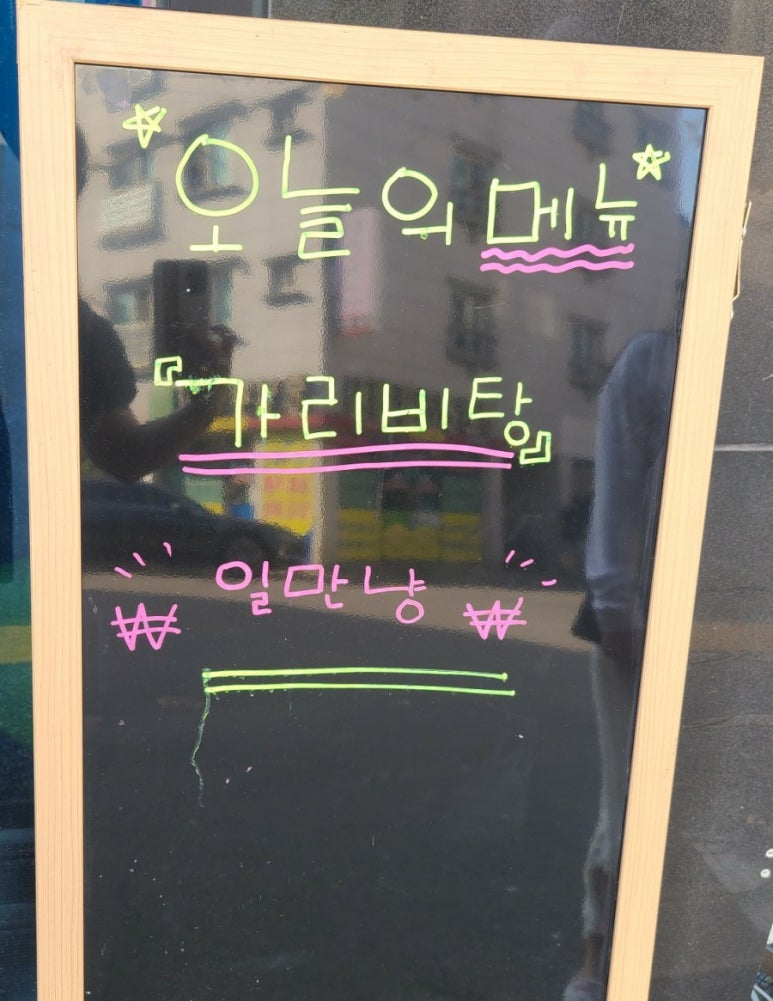 오늘의 메뉴
『가리비탕』
₩ 일만냥 ₩